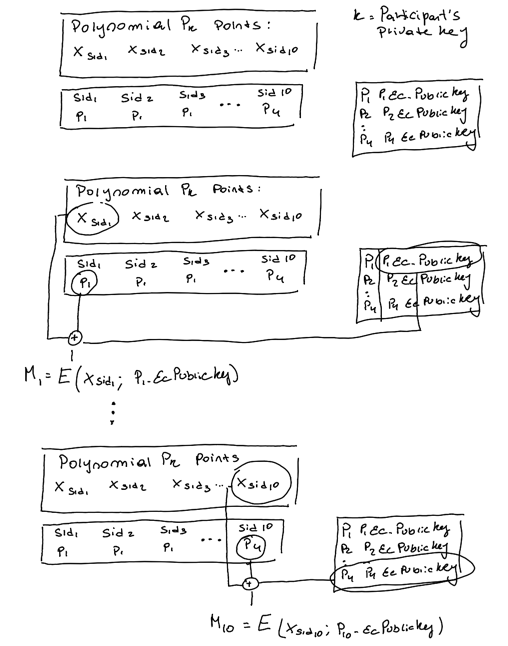 k = Participant's
private key
Polynomial Pk Points:
Xsid1 Xsid2 Xsid3 ... Xsid10
Sid1 Sid2 Sid3 ... Sid10
P1 P1 P1 P4
P1 P1 Ec-Public key
P2 P2 Ec-Public key
:
P4 P4 Ec Public key
Polynomial Pk Points:
Xsid1 Xsid2 Xsid3 ... Xsid10
Sid1 Sid2 Sid3 ... Sid10
P1 P1 P1 P4
P1 P1 Ec-Public key
P2 P2 Ec Public key
:
P4 P4 Ec Public key
+
M1 = E(Xsid1; P1-Ec Public key)
⋮
Polynomial Pk Points
Xsid1 Xsid2 Xsid3 ... Xsid10
Sid1 Sid2 Sid3 ... Sid10
P1 P1 P1 P4
P1 P1 Ec-Public key
P2 P2 Ec Public key
:
P4 P4 Ec Public key
+
M10 = E(Xsid10; P10-Ec Public key)